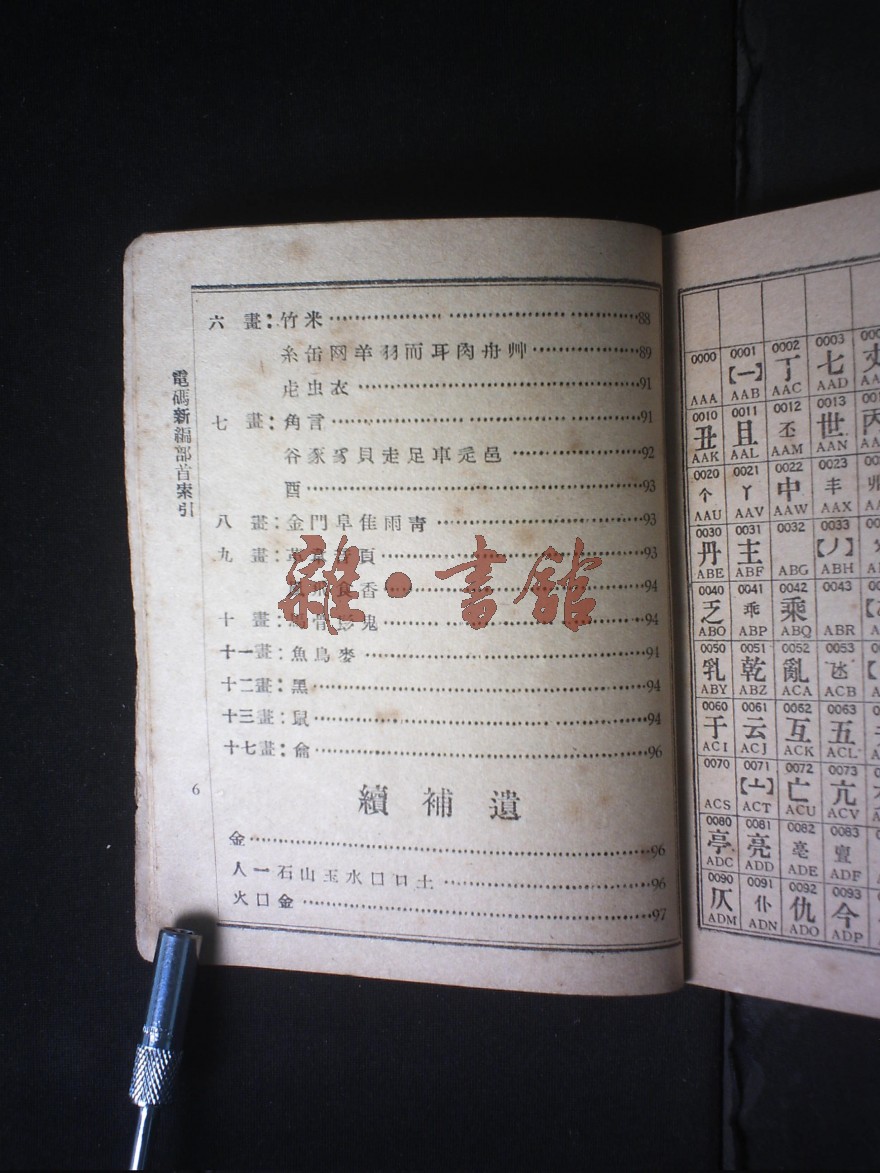 電碼新編部首索引
六畫：竹米……88
糸缶网羊羽而耳肉舟艸……89
虍虫衣……91
七畫：角言……91
谷豕豸貝走足車辵邑……92
酉……93
八畫：金門阜隹雨靑……93
九畫：頁……93
食香……94
十畫：骨鬼……94
十一畫：魚鳥麥……94
十二畫：黑……94
十三畫：鼠……94
十七畫：龠……96
6
續補遺
金……96
人一石山玉水口口土……96
火口金……97
雜·書館
0000 0001 0002 0003
【一】 丁 七
AAA AAB AAC AAD
0010 0011 0012 0013 001
丑 且 丕 世 丙
AAK AAL AAM AAN
0020 0021 0022 0023
个 丫 中 丰
AAU AAV AAW AAX
0030 0031 0032 0033
丹 主 【丿】
ABE ABF ABG ABH
0040 0041 0042 0043
乏 乖 乘
ABO ABP ABQ ABR
0050 0051 0052 0053
乳 乾 亂
ABY ABZ ACA ACB
0060 0061 0062 0063
于 云 互 五
ACI ACJ ACK ACL
0070 0071 0072 0073
【亠】 亡 亢
ACS ACT ACU ACV
0080 0081 0082 0083
亭 亮 亳 亶
ADC ADD ADE ADF
0090 0091 0092 0093
仄 仆 仇 今
ADM ADN ADO ADP